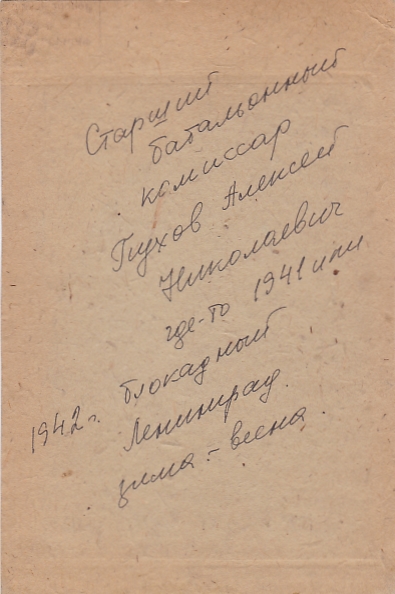 Старший
батальонный
комиссар
Глухов Алексей
Николаевич
где-то 1941 или
1942 г. блокадный
Ленинград.
зима - весна.